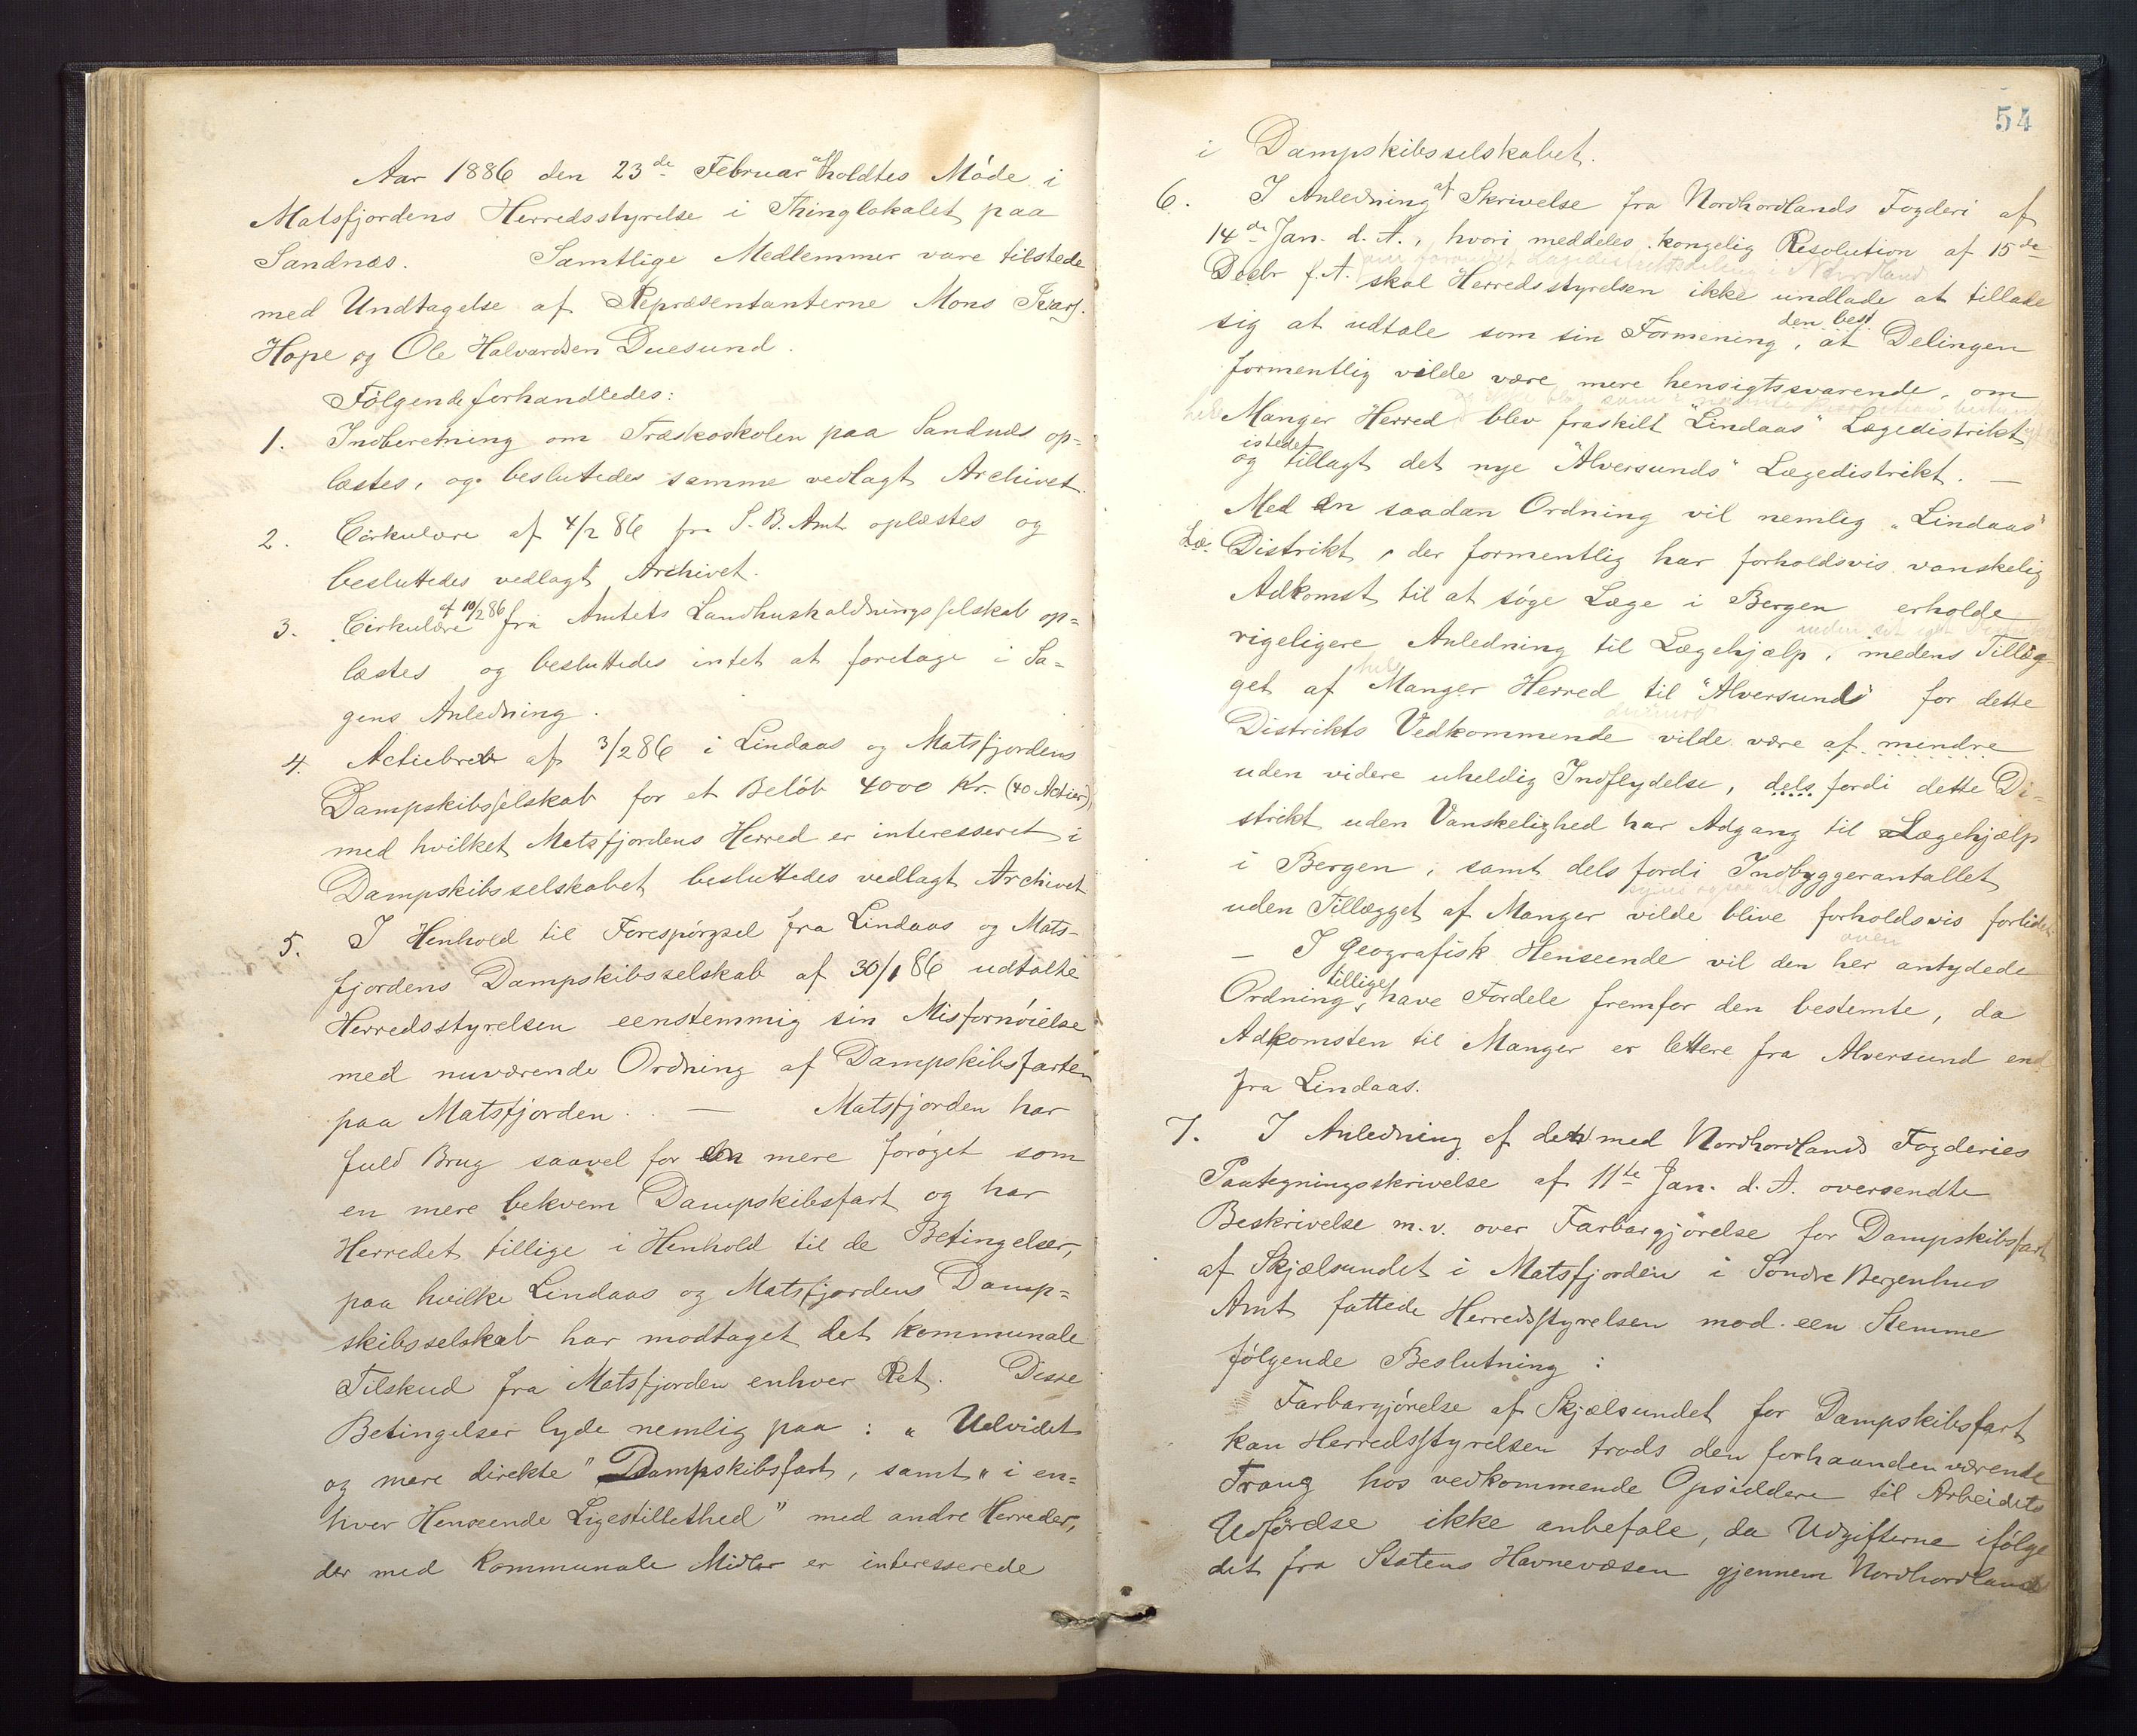 Aar 1886 den 23de Februar afholdtes Møde i
Matsfjordens Herredsstyrelse i Thinglokalet paa
Sandnæs. Samtlige Medlemmer vare tilstede
med Undtagelse af Repræsentanterne Mons
Hope og Ole Halvardsen Duesund.
Følgende forhandledes:
1. Indberetning om Træskoskolen paa Sandnæs op-
læstes, og besluttedes samme vedlagt Archivet.
2. Cirkulære af 4/2 86 fra S. B. Amt oplæstes og
besluttedes vedlagt Archivet.
3. Cirkulære af 10/2 86 fra Amtets Landhusholdningsselskab op-
læstes og besluttedes intet at foretage i Sa-
gens Anledning.
4. Actiebrev af 3/2 86 i Lindaas og Matsfjordens
Dampskibsselskab for et Beløb 4000 Kr. (40 Actier)
med hvilket Matsfjordens Herred er interesseret i
Dampskibsselskabet besluttedes vedlagt Archivet
5. I Henhold til Forespørgsel fra Lindaas og Mats-
fjordens Dampskibsselskab af 30/1 86 udtalte
Herredsstyrelsen eenstemmig sin Misfornøielse
med nuværende Ordning af Dampskibsfarten
paa Matsfjorden. — Matsfjorden har
fuld Brug saavel for en mere forøget som
en mere bekvem Dampskibsfart og har
Herredet tillige i Henhold til de Betingelser,
paa hvilke Lindaas og Matsfjordens Damp-
skibsselskab har modtaget det kommunale
Tilskud fra Matsfjorden enhver Ret. Disse
Betingelser lyde nemlig paa: „Udvidet
og mere direkte" Dampskibsfart, samt „i en-
hver Henseende Ligestillethed" med andre Herreder,
der med kommunale Midler er interesserede
54
i Dampskibsselskabet.
6. I Anledning af Skrivelse fra Nordhordlands Fogderi af
14de Jan. d. A., hvori meddeles kongelig Resolution af 15de
om forandret Lægedistriktsdeling i Nordhordland
Decbr f. A. skal Herredsstyrelsen ikke undlade at tillade
sig at udtale som sin Formening, at den best. Delingen
formentlig vilde være mere hensigtssvarende, om
hele Manger Herred blev fraskilt "Lindaas" Lægedistrikt
og istedet tillagt det nye "Alversunds" Lægedistrikt. —
Med en saadan Ordning vil nemlig „Lindaas"
Læ. Distrikt, der formentlig har forholdsvis vanskelig
Adkomst til at søge Læge i Bergen erholde
rigeligere Anledning til Lægehjælp, medens Tillæg-
get af hele Manger Herred til "Alversunds" for dette
Distrikts Vedkommende vilde være af mindre
uden videre uheldig Indflydelse, dels fordi dette Di-
strikt uden Vanskelighed har Adgang til Lægehjælp
i Bergen, samt dels fordi Indbyggerantallet
uden Tillægget af Manger vilde blive forholdsvis forlidet
— I Geografisk Henseende vil den her oven antydede
Ordning tillige have Fordele fremfor den bestemte, da
Adkomsten til Manger er lettere fra Alversund end
fra Lindaas.
7. I Anledning af den med Nordhordlands Fogderies
Paategningsskrivelse af 11te Jan. d. A. oversendte
Beskrivelse m. v. over Farbargjørelse for Dampskibsfart
af Skjælsundet i Matsfjorden i Søndre Bergenhus
Amt fattede Herredsstyrelsen mod een Stemme
følgende Beslutning:
Farbargjørelse af Skjælsundet for Dampskibsfart
kan Herredsstyrelsen trods den forhaanden værende
Trang hos vedkommende Opsiddere til Arbeidets
Udførelse ikke anbefale, da Udgifterne ifølge
det fra Statens Havnevæsen gjennem Nordhordlands